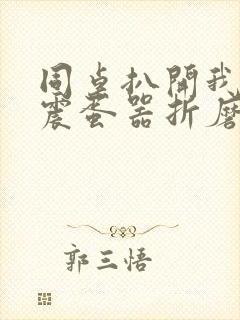 同桌扒開我
震蛋器折磨
郭三悟